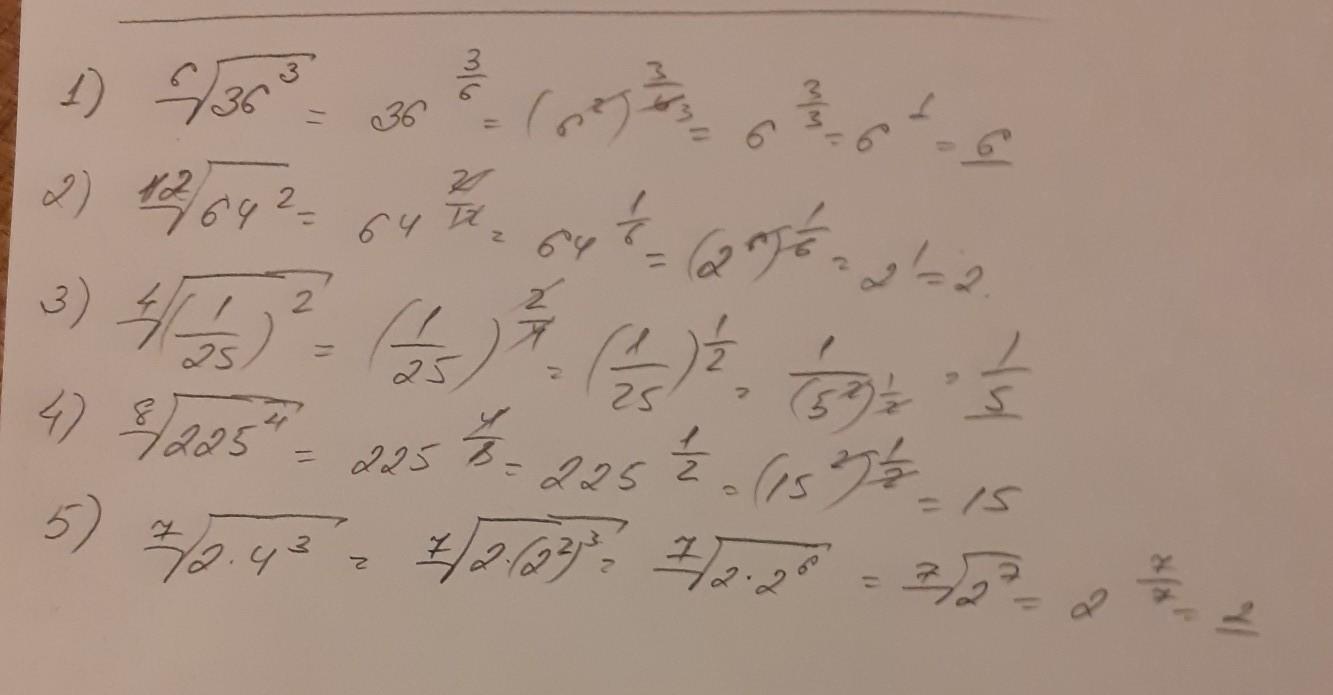 1) ⁶√36³ = 36^(3/6) = (6²)^(3/6 3) = 6^(3/3) = 6¹ = 6
2) ¹²√64² = 64^(2/12) = 64^(1/6) = (2⁶)^(1/6) = 2¹ = 2.
3) ⁴√(1/25)² = (1/25)^(2/4) = (1/25)^(1/2) = 1/(5²)^(1/2) = 1/5
4) ⁸√225⁴ = 225^(4/8) = 225^(1/2) = (15²)^(1/2) = 15
5) ⁷√2·4³ = ⁷√2·(2²)³ = ⁷√2·2⁶ = ⁷√2⁷ = 2^(7/7) = 2